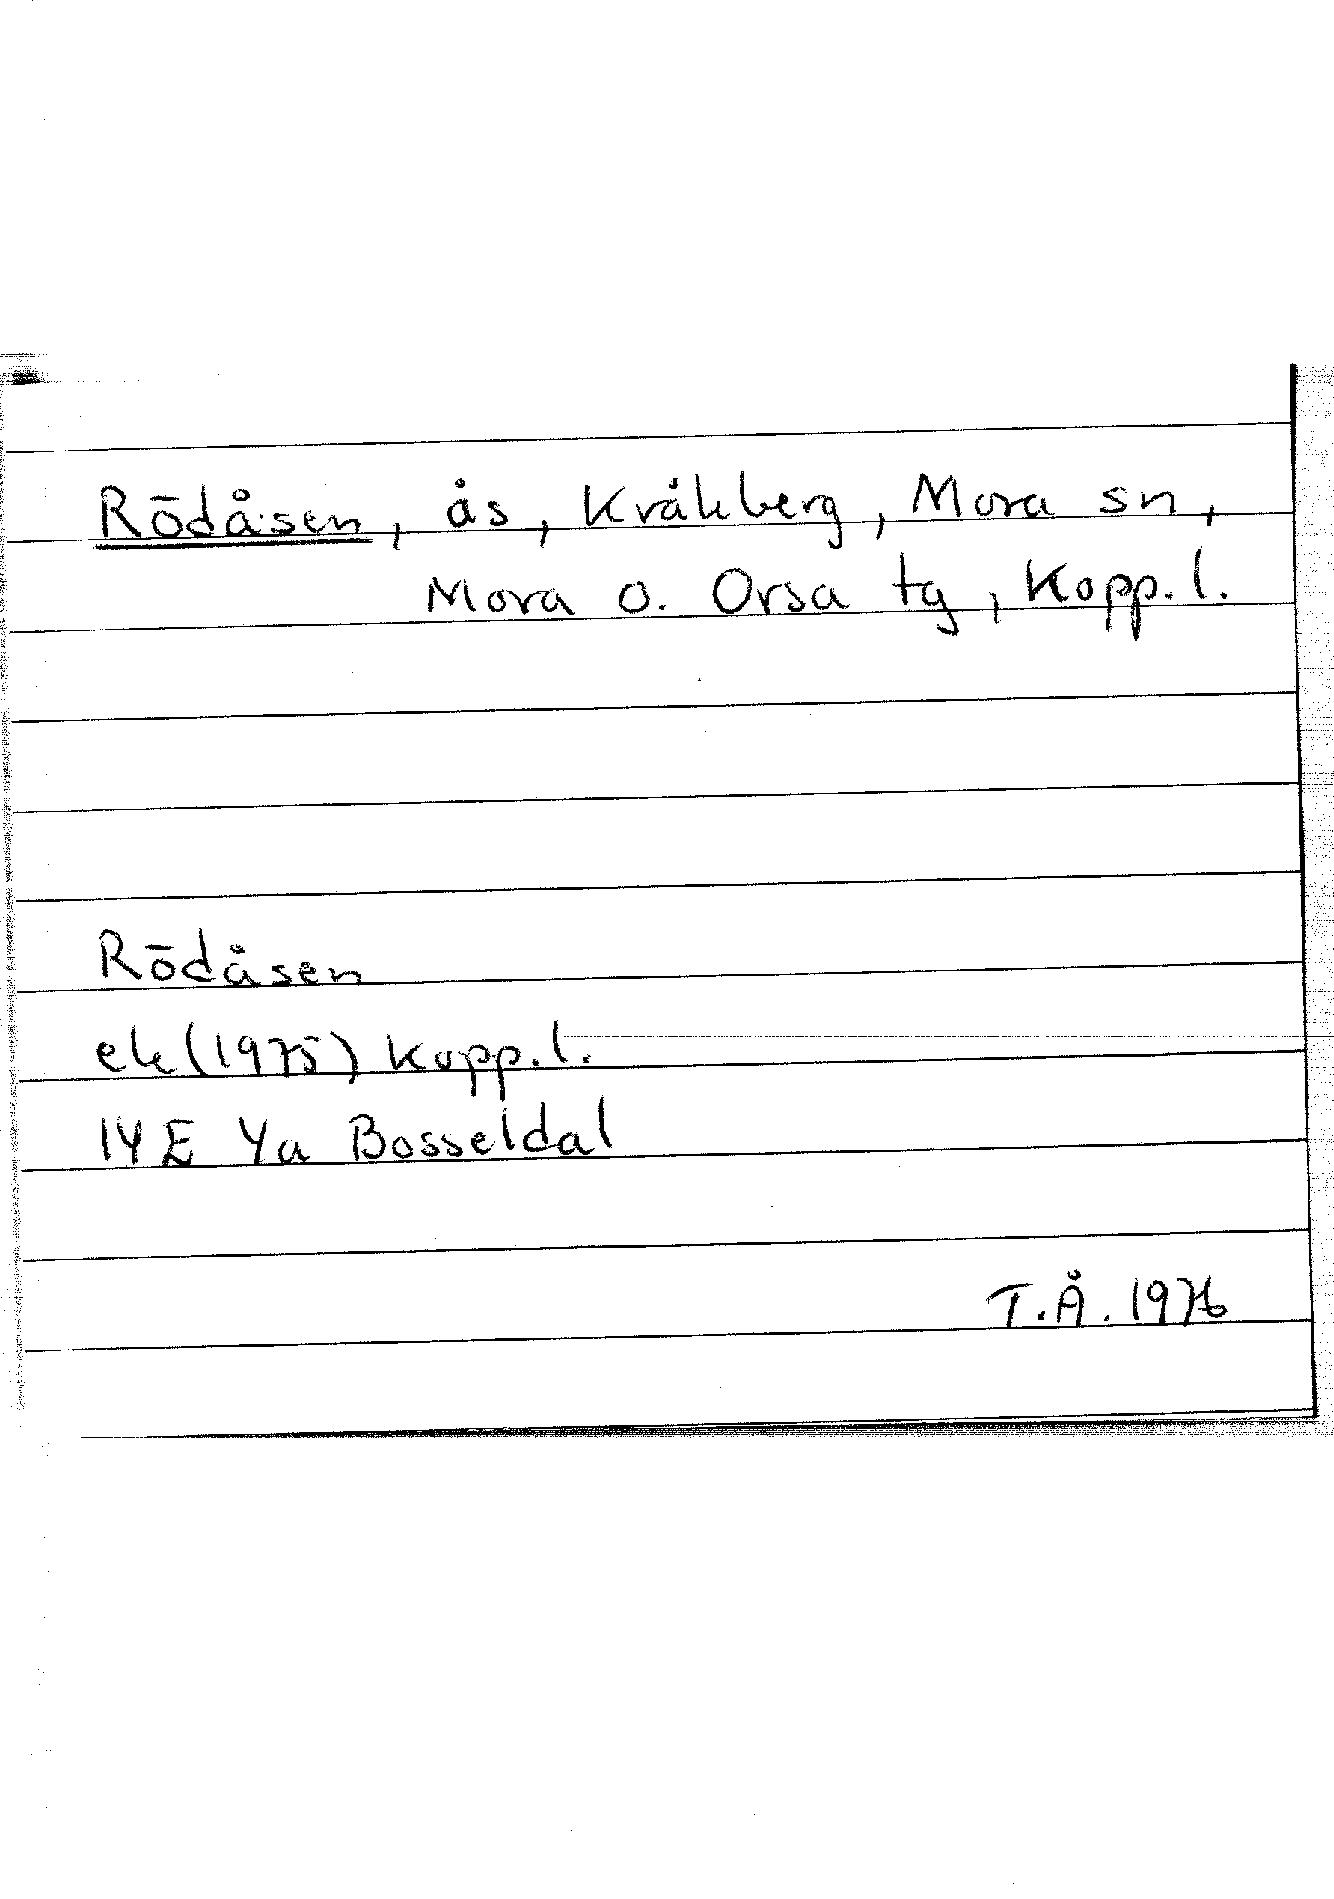 Rödåsen, ås, Kråkberg, Mora sn,
Mora o. Orsa tg, Kopp. l.
Rödåsen
ek (1975) Kopp. l.
14E 4a Bosseldal
T.Å. 1976